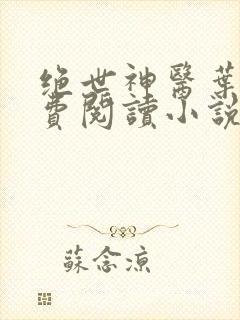 绝世神醫葉
費閱讀小說
蘇念涼